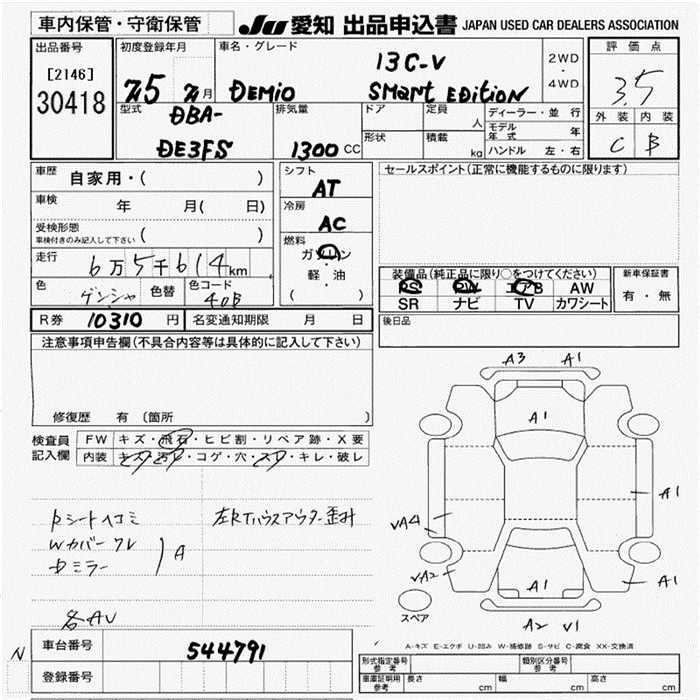 車内保管・守衛保管
JU 愛知 出品申込書 JAPAN USED CAR DEALERS ASSOCIATION
出品番号
[2146]
30418
初度登録年月
月
車名・グレード
DEMIO
13C-V
SMART EDITION
2WD
・
4WD
評価点
3.5
外装 内装
C B
型式
DBA-
DE3FS
排気量
1300 CC
ドア
形状
定員
人
積載
kg
ディーラー・並行
モデル年式 年
ハンドル 左・右
車歴
自家用・( )
車検
年 月( 日)
受検形態
車検付きのみ記入して下さい ( )
走行
6万5千614km
色
ゲンシャ
色替
色コード
40B
シフト
AT
冷房
AC
燃料
ガソリン
・
軽油
( )
セールスポイント(正常に機能するものに限ります)
装備品(純正品に限り○をつけてください)
PS PW エアB AW
SR ナビ TV カワシート
新車保証書
有・無
R券 10310 円
名変通知期限 月 日
後日品
注意事項申告欄(不具合内容等は具体的に記入して下さい)
修復歴 有 〔箇所 〕
検査員
記入欄
FW キズ・飛石・ヒビ割・リペア跡・X要
内装 キズ・汚レ・コゲ・穴・スレ・キレ・破レ
Rシートヘコミ
Wカバークレ
中ミラー
A
左RTハウスアウター歪み
各AU
A3 A1
A1
A1
VA4
VA2
A1
A1
A2 V1
スペア
A-キズ E-エクボ U-凹み W-補修跡 S-サビ C-腐食 XX-交換済
N
車台番号
544791
登録番号
形式指定番号
参考
類別区分番号
参考
車庫証明用
参考
長さ cm
幅 cm
高さ cm